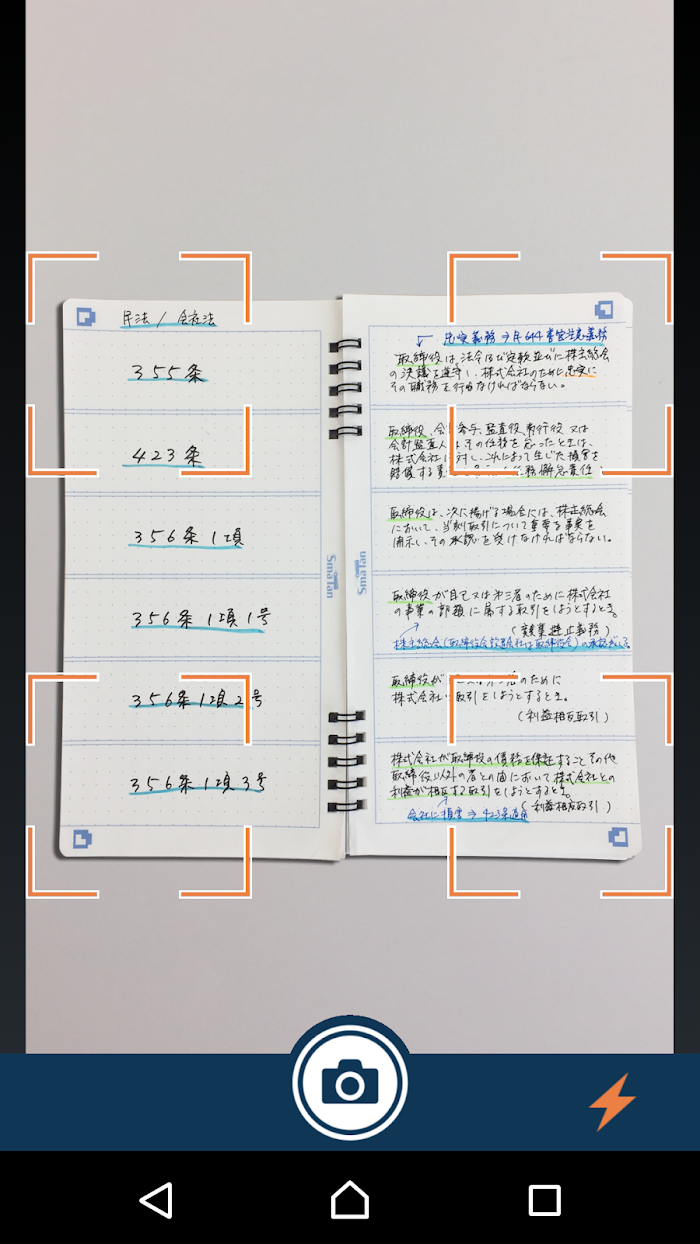 民法 / 会社法
355条
423条
356条1項
356条1項1号
356条1項2号
356条1項3号
SmaTan
SmaTan
忠実義務 → 民644 善管注意義務
取締役は、法令及び定款並びに株主総会
の決議を遵守し、株式会社のために忠実に
その職務を行わなければならない。
取締役、会計参与、監査役、執行役 又は
会計監査人は、その任務を怠ったときは、
株式会社に対し、これによって生じた損害を
賠償する責 任務懈怠責任
取締役は、次に掲げる場合には、株主総会
において、当該取引について重要な事実を
開示し、その承認を受けなければならない。
取締役が自己又は第三者のために株式会社
の事業の部類に属する取引をしようとするとき。
(競業避止義務)
株主総会(取締役会設置会社は取締役会)の承認
取締役が のために
株式会社 取引をしようとするとき。
(利益相反取引)
株式会社が取締役の債務を保証することその他
取締役以外の者との間において株式会社との
利益が相反する取引をしようとするとき。
(利益相反取引)
会社に損害 → 423条適用